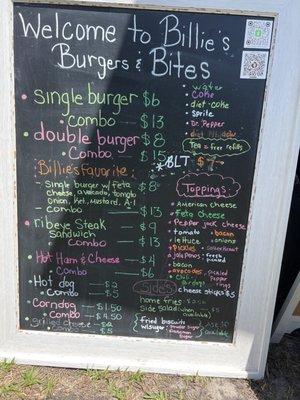 Welcome to Billie's
Burgers & Bites
Single burger $6
combo — $13
double burger $8
Combo — $15
Billie's Favorite: $8
Single burger w/ feta
cheese, avocado, tomato
onion, Ket, Mustard, A-1
combo — $13
ribeye Steak $9
Sandwich
combo — $13
Hot Ham & Cheese $4
Combo $6
Hot dog $2
combo $5
Corndog $1.50
combo $4.50
grilled cheese $2
water
coke
diet coke
Sprite
Dr. Pepper
Tea - free refills
*BLT $7
Toppings:
American cheese
Feta cheese
Pepper jack cheese
tomato
bacon
lettuce
onions
pickles
jalapenos
bacon
avocados
Sides
cheese sticks $5
home fries
Side salad (when available)
fried biscuits
w/sugar